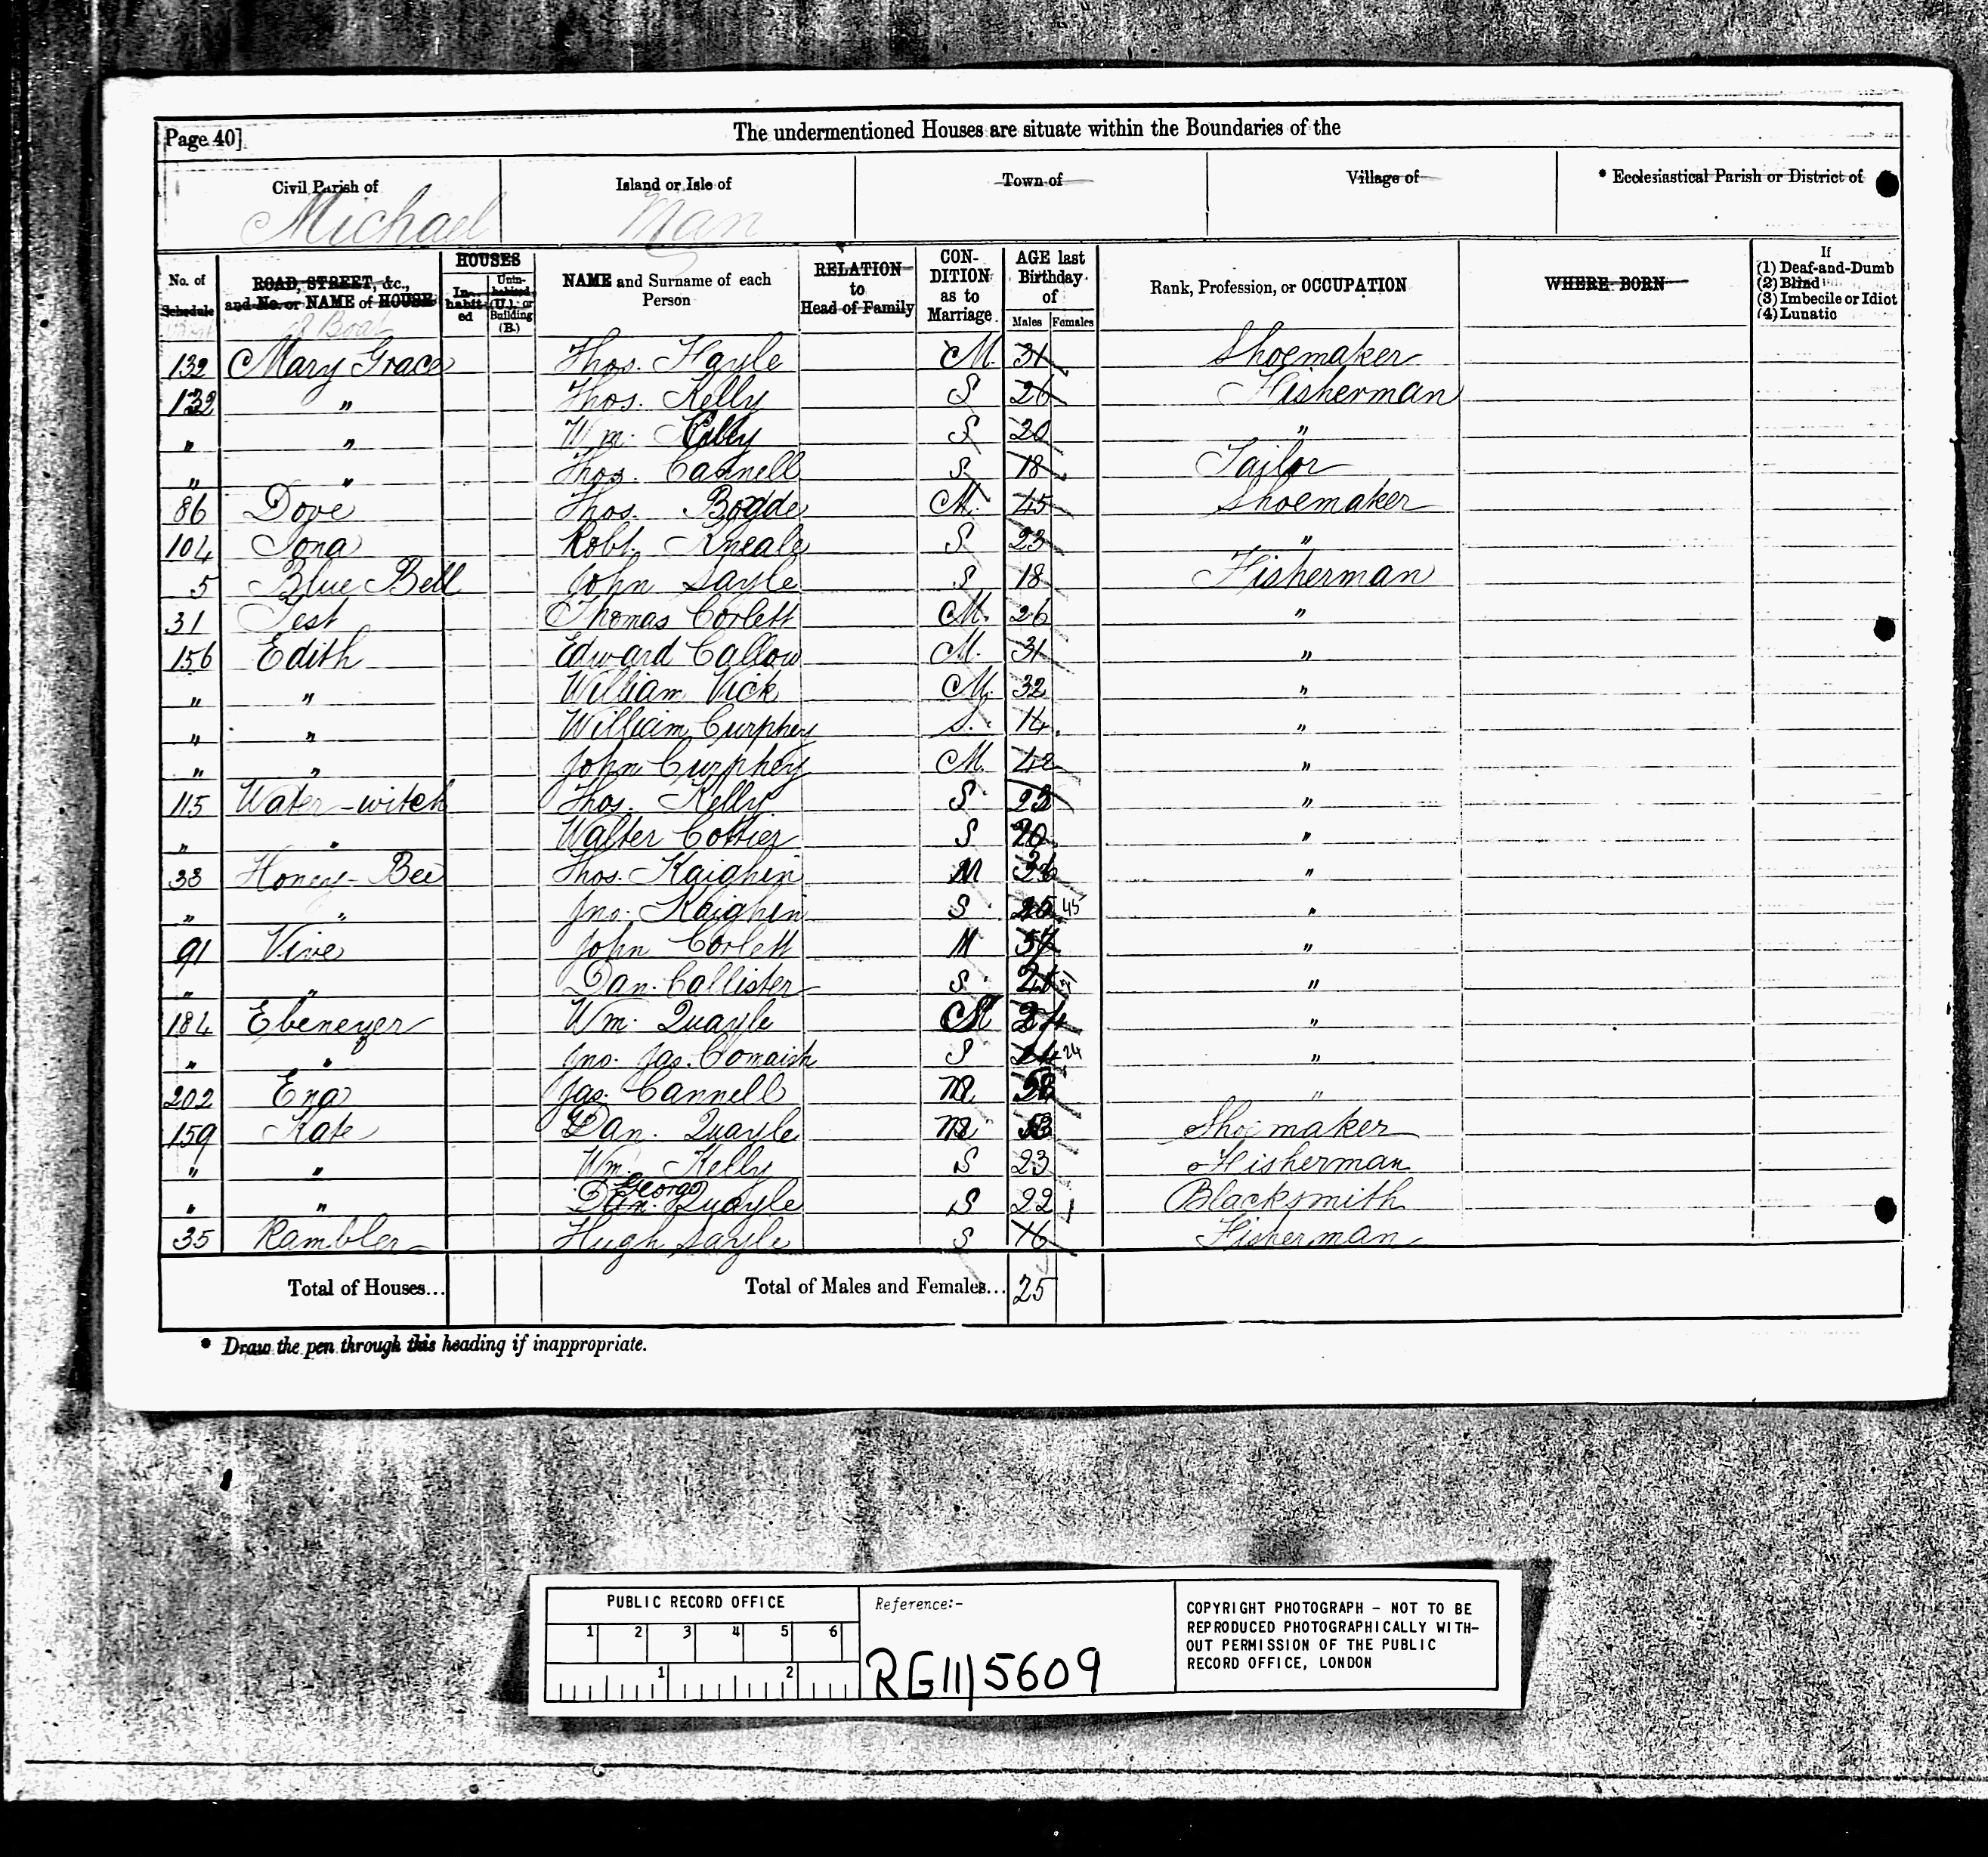 Page 40] The undermentioned Houses are situate within the Boundaries of the
Civil Parish of Island or Isle of Town of Village of * Ecclesiastical Parish or District of
Michael Man
No. of Schedule ROAD, STREET, &c., and No. or NAME of HOUSE HOUSES Inhabited Uninhabited (U.), or Building (B.) NAME and Surname of each Person RELATION to Head of Family CONDITION as to Marriage AGE last Birthday of Males Females Rank, Profession, or OCCUPATION WHERE BORN If (1) Deaf-and-Dumb (2) Blind (3) Imbecile or Idiot (4) Lunatic
of Boat
132 Mary Grace Thos. Kayle M. 31 Shoemaker
132 " Thos. Kelly S 26 Fisherman
" " Wm. S 20 "
" " Thos. Cannell S 18 Tailor
86 Dove Thos. Boyde M. 45 Shoemaker
104 Iona Robt. Kneale S. 23 "
5 Blue Bell John Sayle S 18 Fisherman
31 Test Thomas Corlett M. 26 "
156 Edith Edward Callow M. 31 "
" " William Vick M. 32 "
" " William Curphey S. 14 "
" " John Curphey M. 42 "
115 Water-witch Thos. Kelly S. 23 "
" " Walter Cottier S 20 "
33 Honey-Bee Thos. Kaighin M "
" " Jno. Kaighin S. 45 "
91 Vine John Corlett M "
" " Dan. Callister S. "
184 Ebenezer Wm. Quayle M 24 "
" " Jno. Jas. Comaish S 24 "
202 Ena Jas. Cannell M "
159 Kate Dan. Quayle M Shoemaker
" " Wm. Kelly S 23 Fisherman
George
" " Dan. Quayle S 22 Blacksmith
35 Rambler Hugh Sayle S 16 Fisherman
Total of Houses... Total of Males and Females... 25
* Draw the pen through this heading if inappropriate.
PUBLIC RECORD OFFICE Reference:- COPYRIGHT PHOTOGRAPH - NOT TO BE
1 2 3 4 5 6 REPRODUCED PHOTOGRAPHICALLY WITH-
OUT PERMISSION OF THE PUBLIC
1 2 RG11/5609 RECORD OFFICE, LONDON